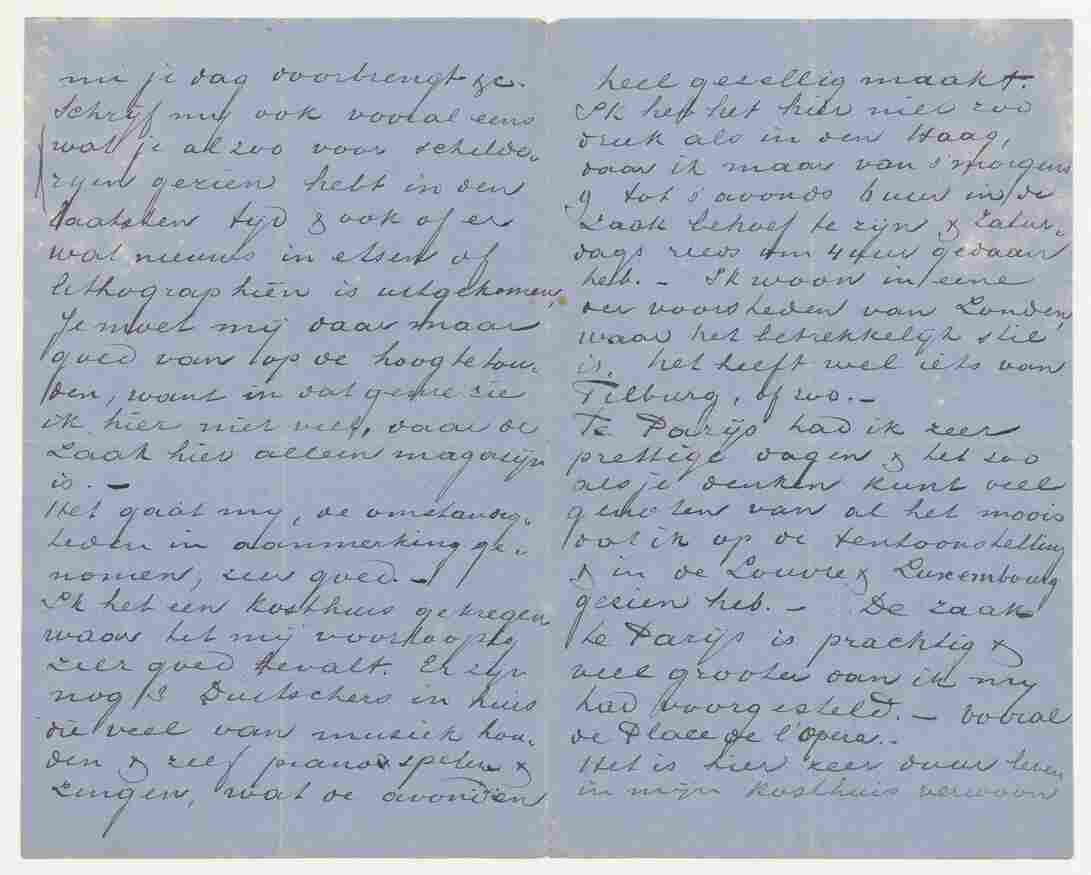 nu je dag doorbrengt &c.
Schrijf mij ook vooral eens
wat je alzoo voor schilde-
rijen gezien hebt in den
laatsten tijd & ook of er
wat nieuws in etsen of
lithographiën is uitgekomen,
Je moet mij daar maar
goed van op de hoogte hou-
den, want in dat genre zie
ik hier niet veel, daar de
Zaak hier alleen magazijn
is. —
Het gaat mij, de omstandig-
heden in aanmerking ge-
nomen, zeer goed. —
Ik heb een kosthuis gekregen
waar het mij voorloopig
zeer goed bevalt. Er zijn
nog 3 Duitschers in huis
die veel van musiek hou-
den & zelf piano spelen &
zingen, wat de avonden
heel gezellig maakt.
Ik heb het hier niet zoo
druk als in den Haag,
daar ik maar van s'morgens
9 tot s'avonds 6 uur in de
Zaak behoef te zijn & Zatur-
dags reeds om 4 uur gedaan
heb. – Ik woon in eene
der voorsteden van Londen,
waar het betrekkelijk stil
is. het heeft wel iets van
Tilburg, of zoo. –
Te Parijs had ik zeer
prettige dagen & heb zoo
als je denken kunt veel
genoten van al het moois
dat ik op de tentoonstelling
& in de Louvre & Luxembourg
gezien heb. – De zaak
te Parijs is prachtig &
veel grooter dan ik mij
had voorgesteld. – Vooral
de Place de l'Opera. –
Het is hier zeer duur leven
in mijn kosthuis verwoon